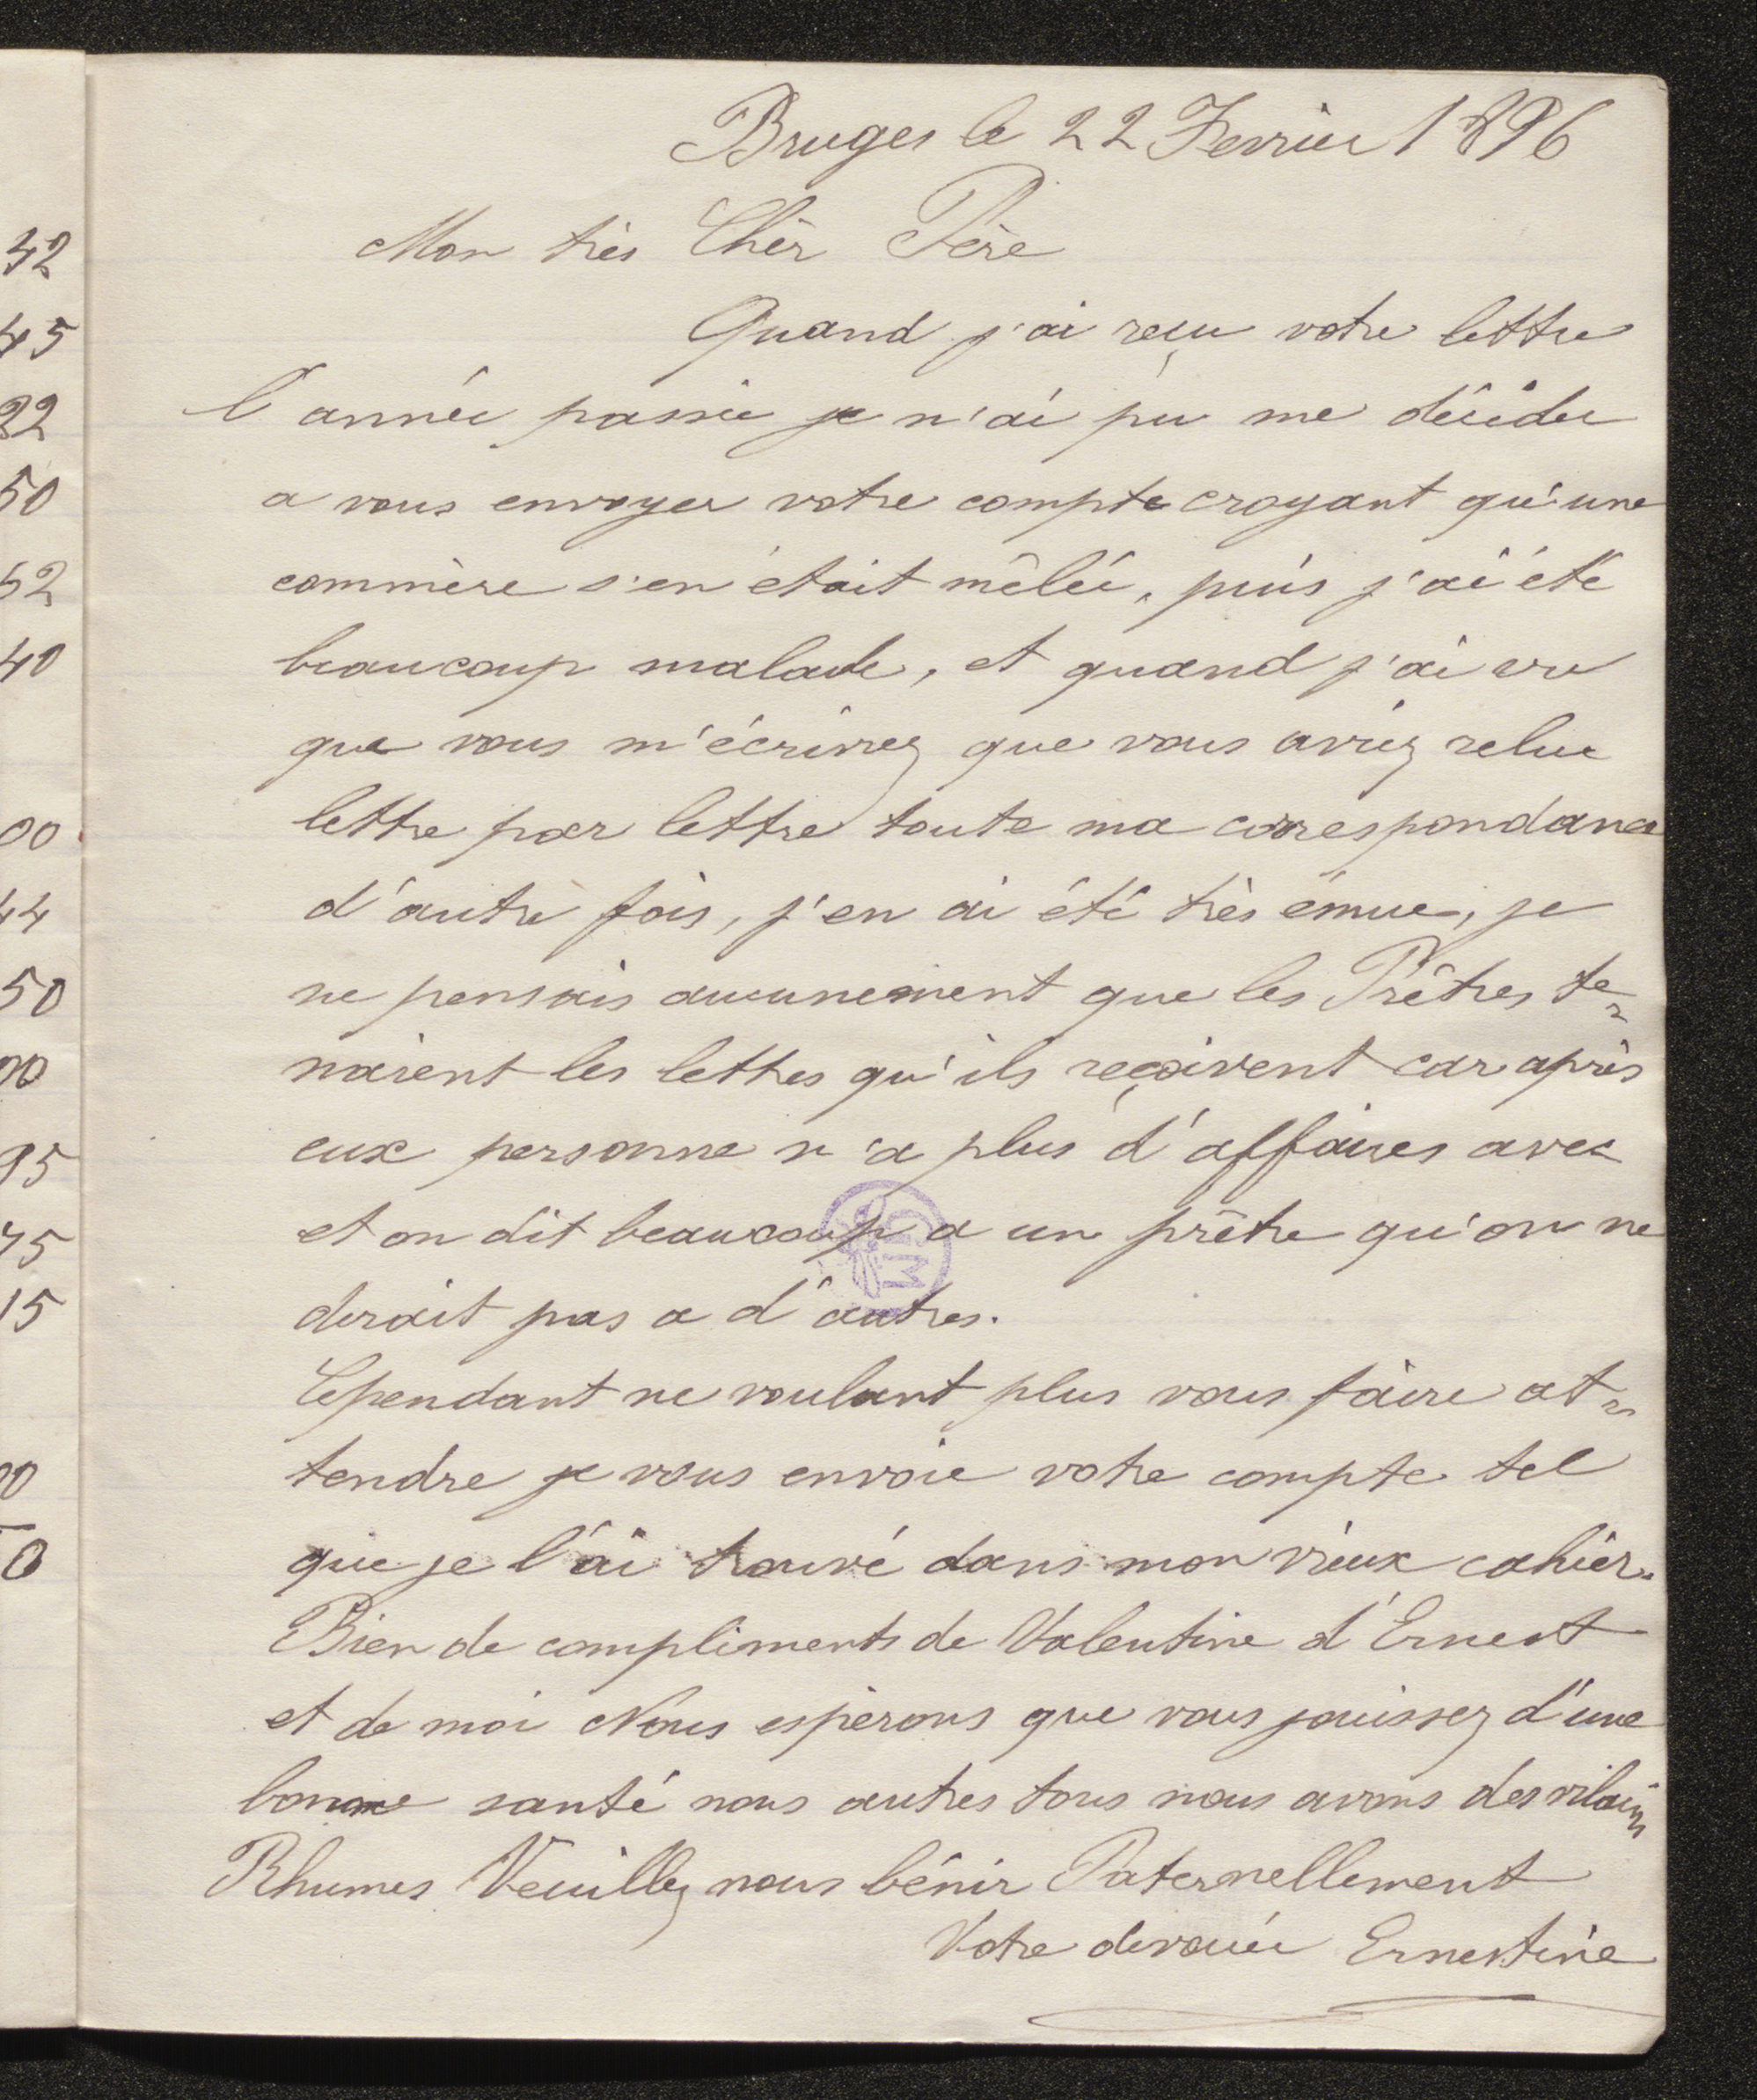 Bruges le 22 Fevrier 1896
Mon très Chèr Père
Quand j'ai reçu votre lettre
l'année passée je n'ai pu me décider
a vous envoyer votre compte croyant qu'une
commère s'en était mêlée, puis j'ai été
beaucoup malade, et quand j'ai vu
que vous m'écrivez que vous aviez relue
lettre par lettre toute ma correspondance
d'autre fois, j'en ai été très émue, je
ne pensais aucunement que les Prêtres te=
naient les lettres qu'ils reçoivent car après
eux personne n'a plus d'affaires avec
et on dit beaucoup a un prêtre qu'on ne
dirait pas a d'autres.
Cependant ne voulant plus vous faire at=
tendre je vous envoie votre compte tel
que je l'ai trouvé dans mon vieux cahier.
Bien de compliments de Valentine d'Ernest
et de moi Nous espérons que vous jouissez d'une
bonne santé nous autres tous nous avons des vilains
Rhumes Veuillez nous bénir Paternellement
Votre dévouée Ernestine
42
45
22
50
52
40
00
44
50
00
95
75
15
00
0